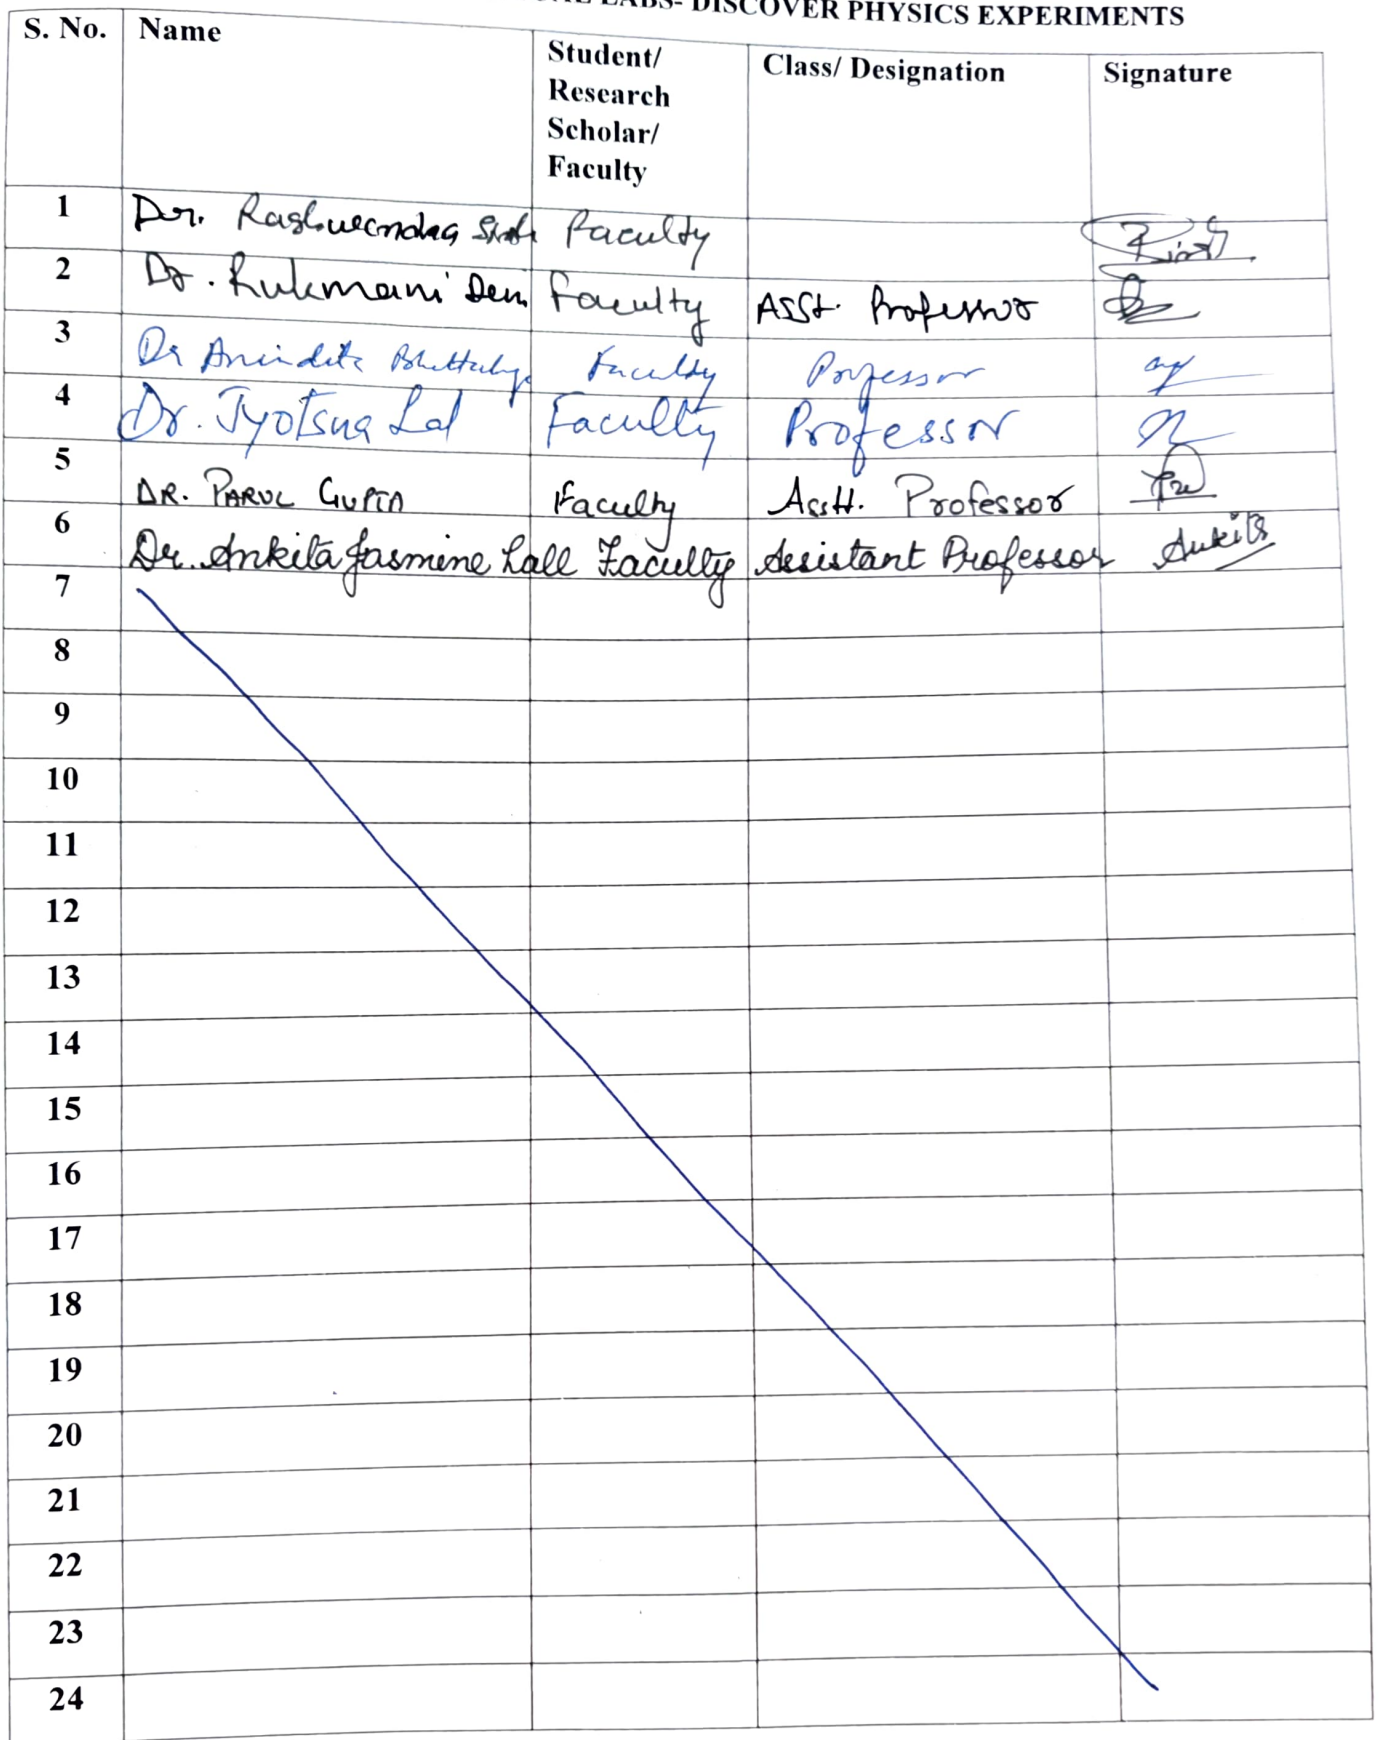 LABS- DISCOVER PHYSICS EXPERIMENTS
S. No. Name Student/ Research Scholar/ Faculty Class/ Designation Signature
1 Dr. Raghuvendra Faculty
2 Dr. Rukmani Faculty Asst. Professor
3 Dr Anindita Faculty Professor
4 Dr. Jyotsna Lal Faculty Professor
5 DR. PARUL GUPTA Faculty Asstt. Professor
6 Dr. Ankita Jasmine Lall Faculty Assistant Professor Ankita
7
8
9
10
11
12
13
14
15
16
17
18
19
20
21
22
23
24